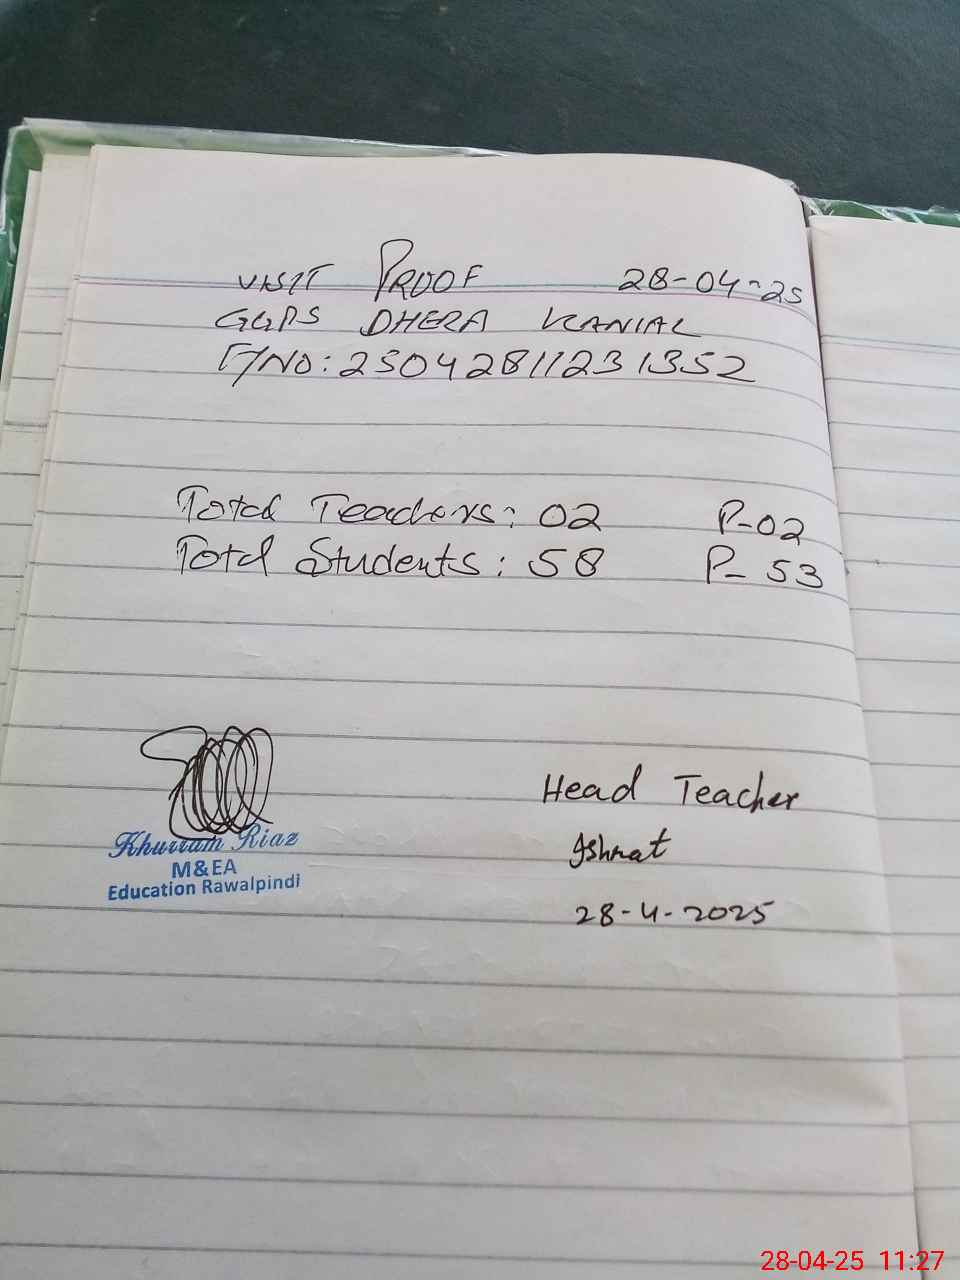 VISIT PROOF 28-04-25
GGPS DHERA KANIAL
F/NO: 250428112231352
Total Teachers: 02 P-02
Total Students: 58 P- 53
Khurram Riaz
M&EA
Education Rawalpindi
Head Teacher
Ishrat
28-4-2025
28-04-25 11:27